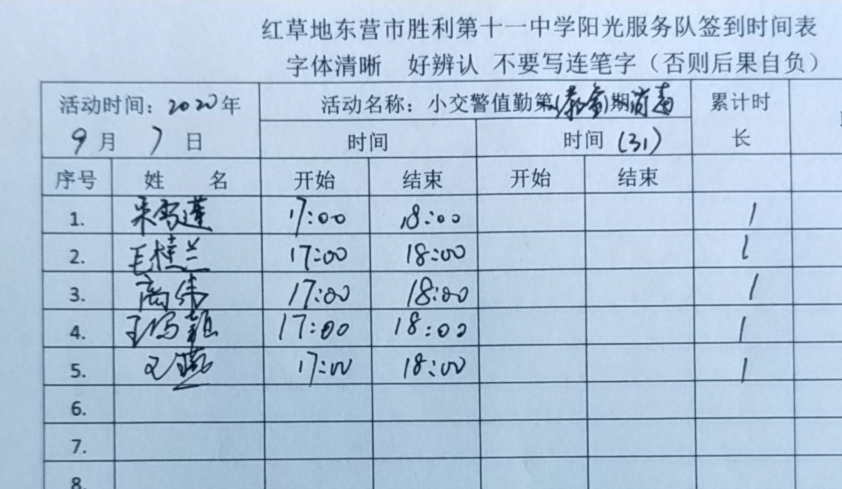 红草地东营市胜利第十一中学阳光服务队签到时间表
字体清晰 好辨认 不要写连笔字（否则后果自负）
活动时间：2020年 活动名称：小交警值勤第 期消毒 累计时长
9月7日 时间 时间（31）
序号 姓名 开始 结束 开始 结束
1. 17:00 18:00 1
2. 毛桂兰 17:00 18:00 1
3. 高伟 17:00 18:00 1
4. 17:00 18:00 1
5. 王燕 17:00 18:00 1
6.
7.
8.